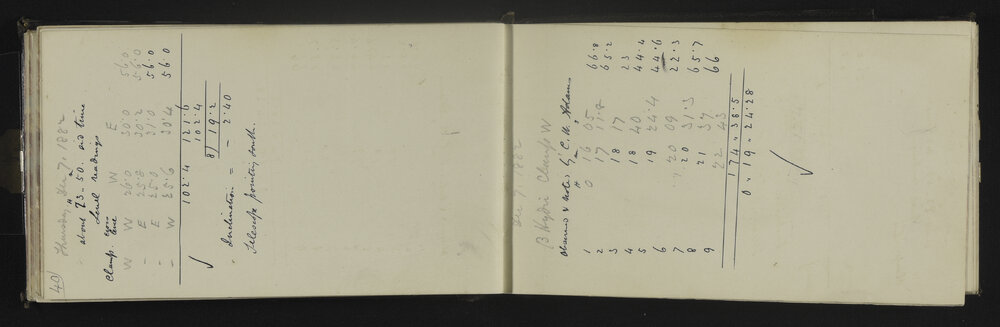 40
Thursday, Dec 7, 1882
about 23-50. sid time
Level readings
Clamp. Eye End W E
W W 26.0 30.0 56.0
- E 25.8 30.2 56.0
- E 25.0 31.0 56.0
- W 25.6 30.4 56.0
102.4 121.6
102.4
8) 19.2
✓ Inclination = - 2.40
Telescope pointing South.
Dec 7, 1882
β Hydri Clamp W
observed & noted by C. W. Adams
1 0 16 05 66.8
2 17 11.2 65.2
3 18 17 23
4 18 40 44.4
5 19 24.4 44.6
6 20 09 22.3
7 20 31.3 65.7
8 21 37 66
9 22 43
174.38.5
0.19.24.28
✓